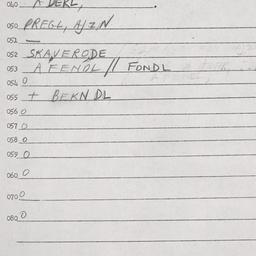 040 A DERL,
050 PREGL, AJZN
051 —
052 SKAVERODE
053 A FENDL // FONDL
054 0
055 + BEKNDL
056 0
057 0
058 0
059 0
060 0
070 0
080 0